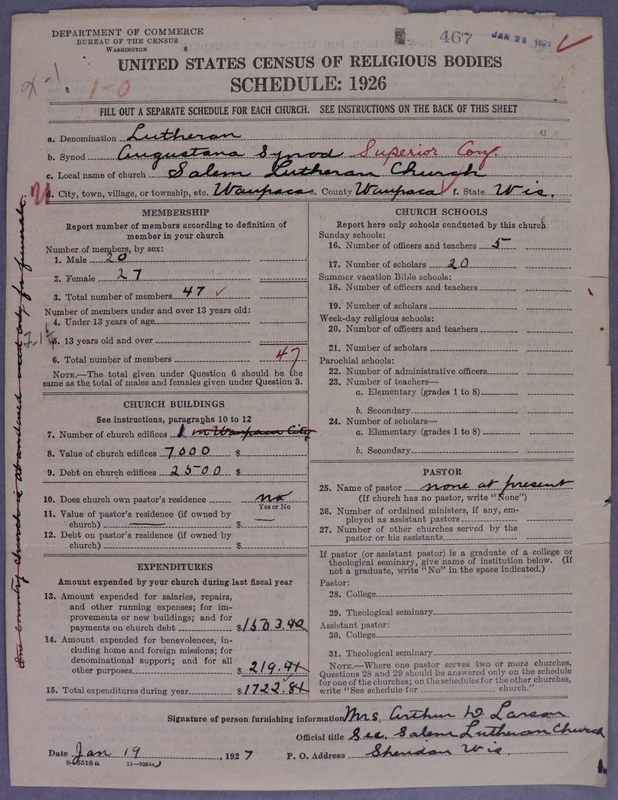 DEPARTMENT OF COMMERCE
BUREAU OF THE CENSUS
WASHINGTON
467
JAN 22
X-1
1-0
UNITED STATES CENSUS OF RELIGIOUS BODIES
SCHEDULE: 1926
FILL OUT A SEPARATE SCHEDULE FOR EACH CHURCH. SEE INSTRUCTIONS ON THE BACK OF THIS SHEET
a. Denomination Lutheran
b. Synod Augustana Synod Superior Conf.
c. Local name of church Salem Lutheran Church
d. City, town, village, or township, etc. Waupaca e. County Waupaca f. State Wis.
MEMBERSHIP
Report number of members according to definition of
member in your church
Number of members, by sex:
1. Male 20
2. Female 27
3. Total number of members 47
Number of members under and over 13 years old:
4. Under 13 years of age
5. 13 years old and over
6. Total number of members 47
NOTE.—The total given under Question 6 should be the
same as the total of males and females given under Question 3.
CHURCH BUILDINGS
See instructions, paragraphs 10 to 12
7. Number of church edifices 1 in Waupaca City
8. Value of church edifices 7000 $
9. Debt on church edifices 2500 $
10. Does church own pastor's residence no
Yes or No
11. Value of pastor's residence (if owned by
church) — $ —
12. Debt on pastor's residence (if owned by
church) $
EXPENDITURES
Amount expended by your church during last fiscal year
13. Amount expended for salaries, repairs,
and other running expenses; for im-
provements or new buildings; and for
payments on church debt $1503.40
14. Amount expended for benevolences, in-
cluding home and foreign missions; for
denominational support; and for all
other purposes $219.41
15. Total expenditures during year $1722.81
CHURCH SCHOOLS
Report here only schools conducted by this church
Sunday schools:
16. Number of officers and teachers 5
17. Number of scholars 20
Summer vacation Bible schools:
18. Number of officers and teachers
19. Number of scholars
Week-day religious schools:
20. Number of officers and teachers
21. Number of scholars
Parochial schools:
22. Number of administrative officers
23. Number of teachers—
a. Elementary (grades 1 to 8)
b. Secondary
24. Number of scholars—
a. Elementary (grades 1 to 8)
b. Secondary
PASTOR
25. Name of pastor none at present
(If church has no pastor, write "None")
26. Number of ordained ministers, if any, em-
ployed as assistant pastors
27. Number of other churches served by the
pastor or his assistants
If pastor (or assistant pastor) is a graduate of a college or
theological seminary, give name of institution below. (If
not a graduate, write "No" in the space indicated.)
Pastor:
28. College
29. Theological seminary
Assistant pastor:
30. College
31. Theological seminary
NOTE.—Where one pastor serves two or more churches,
Questions 28 and 29 should be answered only on the schedule
for one of the churches; on the schedules for the other churches,
write "See schedule for church."
Signature of person furnishing information Mrs. Arthur D Larson
Official title Sec. Salem Lutheran Church
Date Jan 19, 1927 P. O. Address Sheridan Wis.
One country church is abandoned used only for funerals